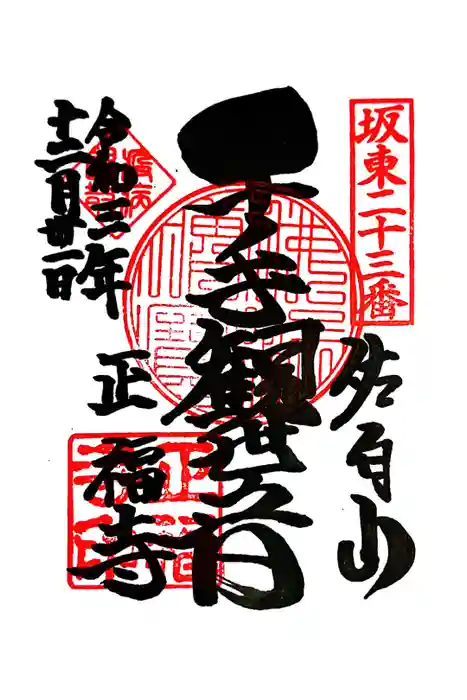 坂東二十三番
佐白山
千手観世音
正福寺
令和三年
十二月廿一日